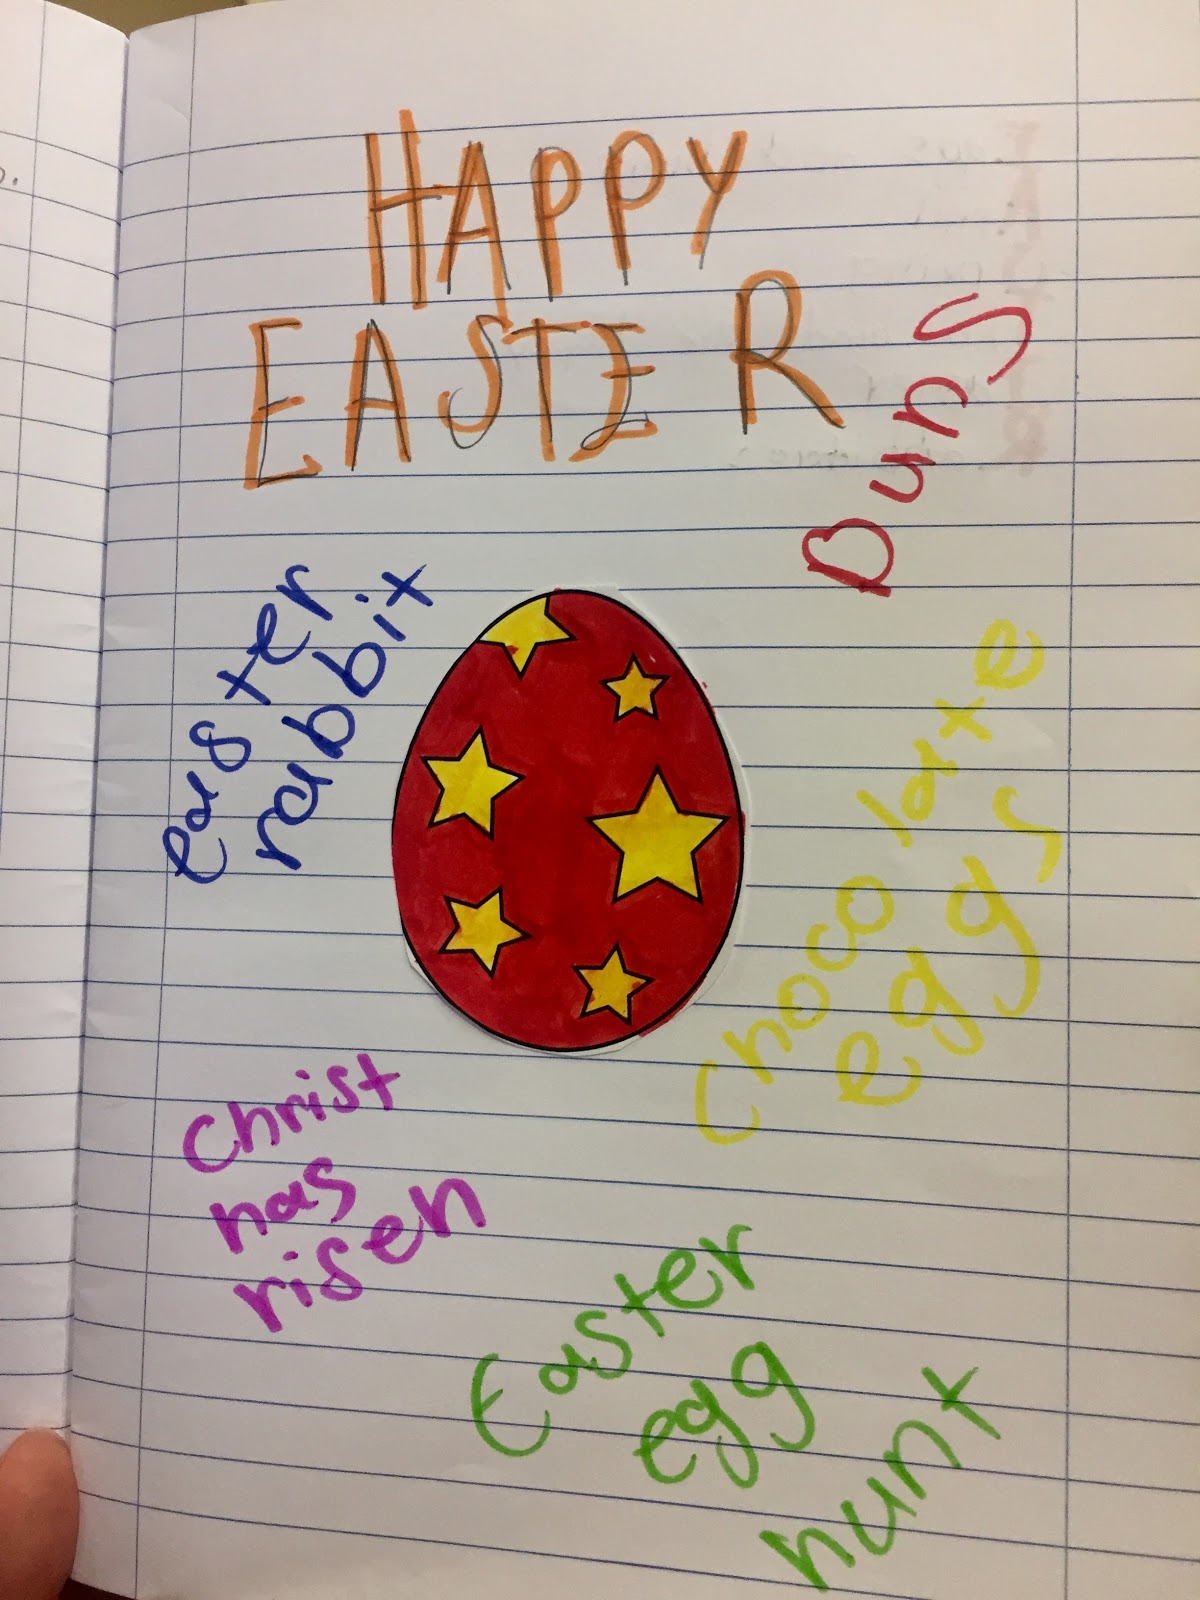 HAPPY
EASTER
Buns
easter
rabbit
Chocolate
eggs
Christ
has
risen
Easter
egg
hunt